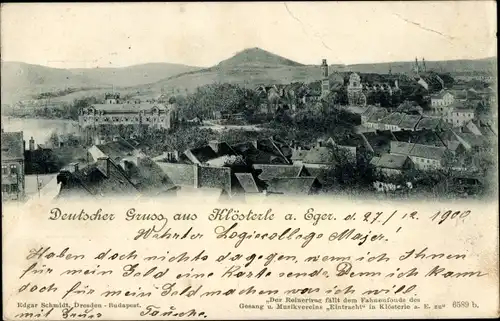 Deutscher Gruss aus Klösterle a. Eger. d. 27/12 1900
Wehrter Logiecollege Majer!
Haben doch nichts dagegen, wenn ich Ihnen
für mein Geld eine Karte sende. Denn ich kann
doch für mein Geld machen was ich will.
mit Gruss
Edgar Schmidt, Dresden - Budapest.
„Der Reinertrag fällt dem Fahnenfonds des
Gesang u. Musikvereins „Eintracht“ in Klösterle a. E. zu“ 6589 b.